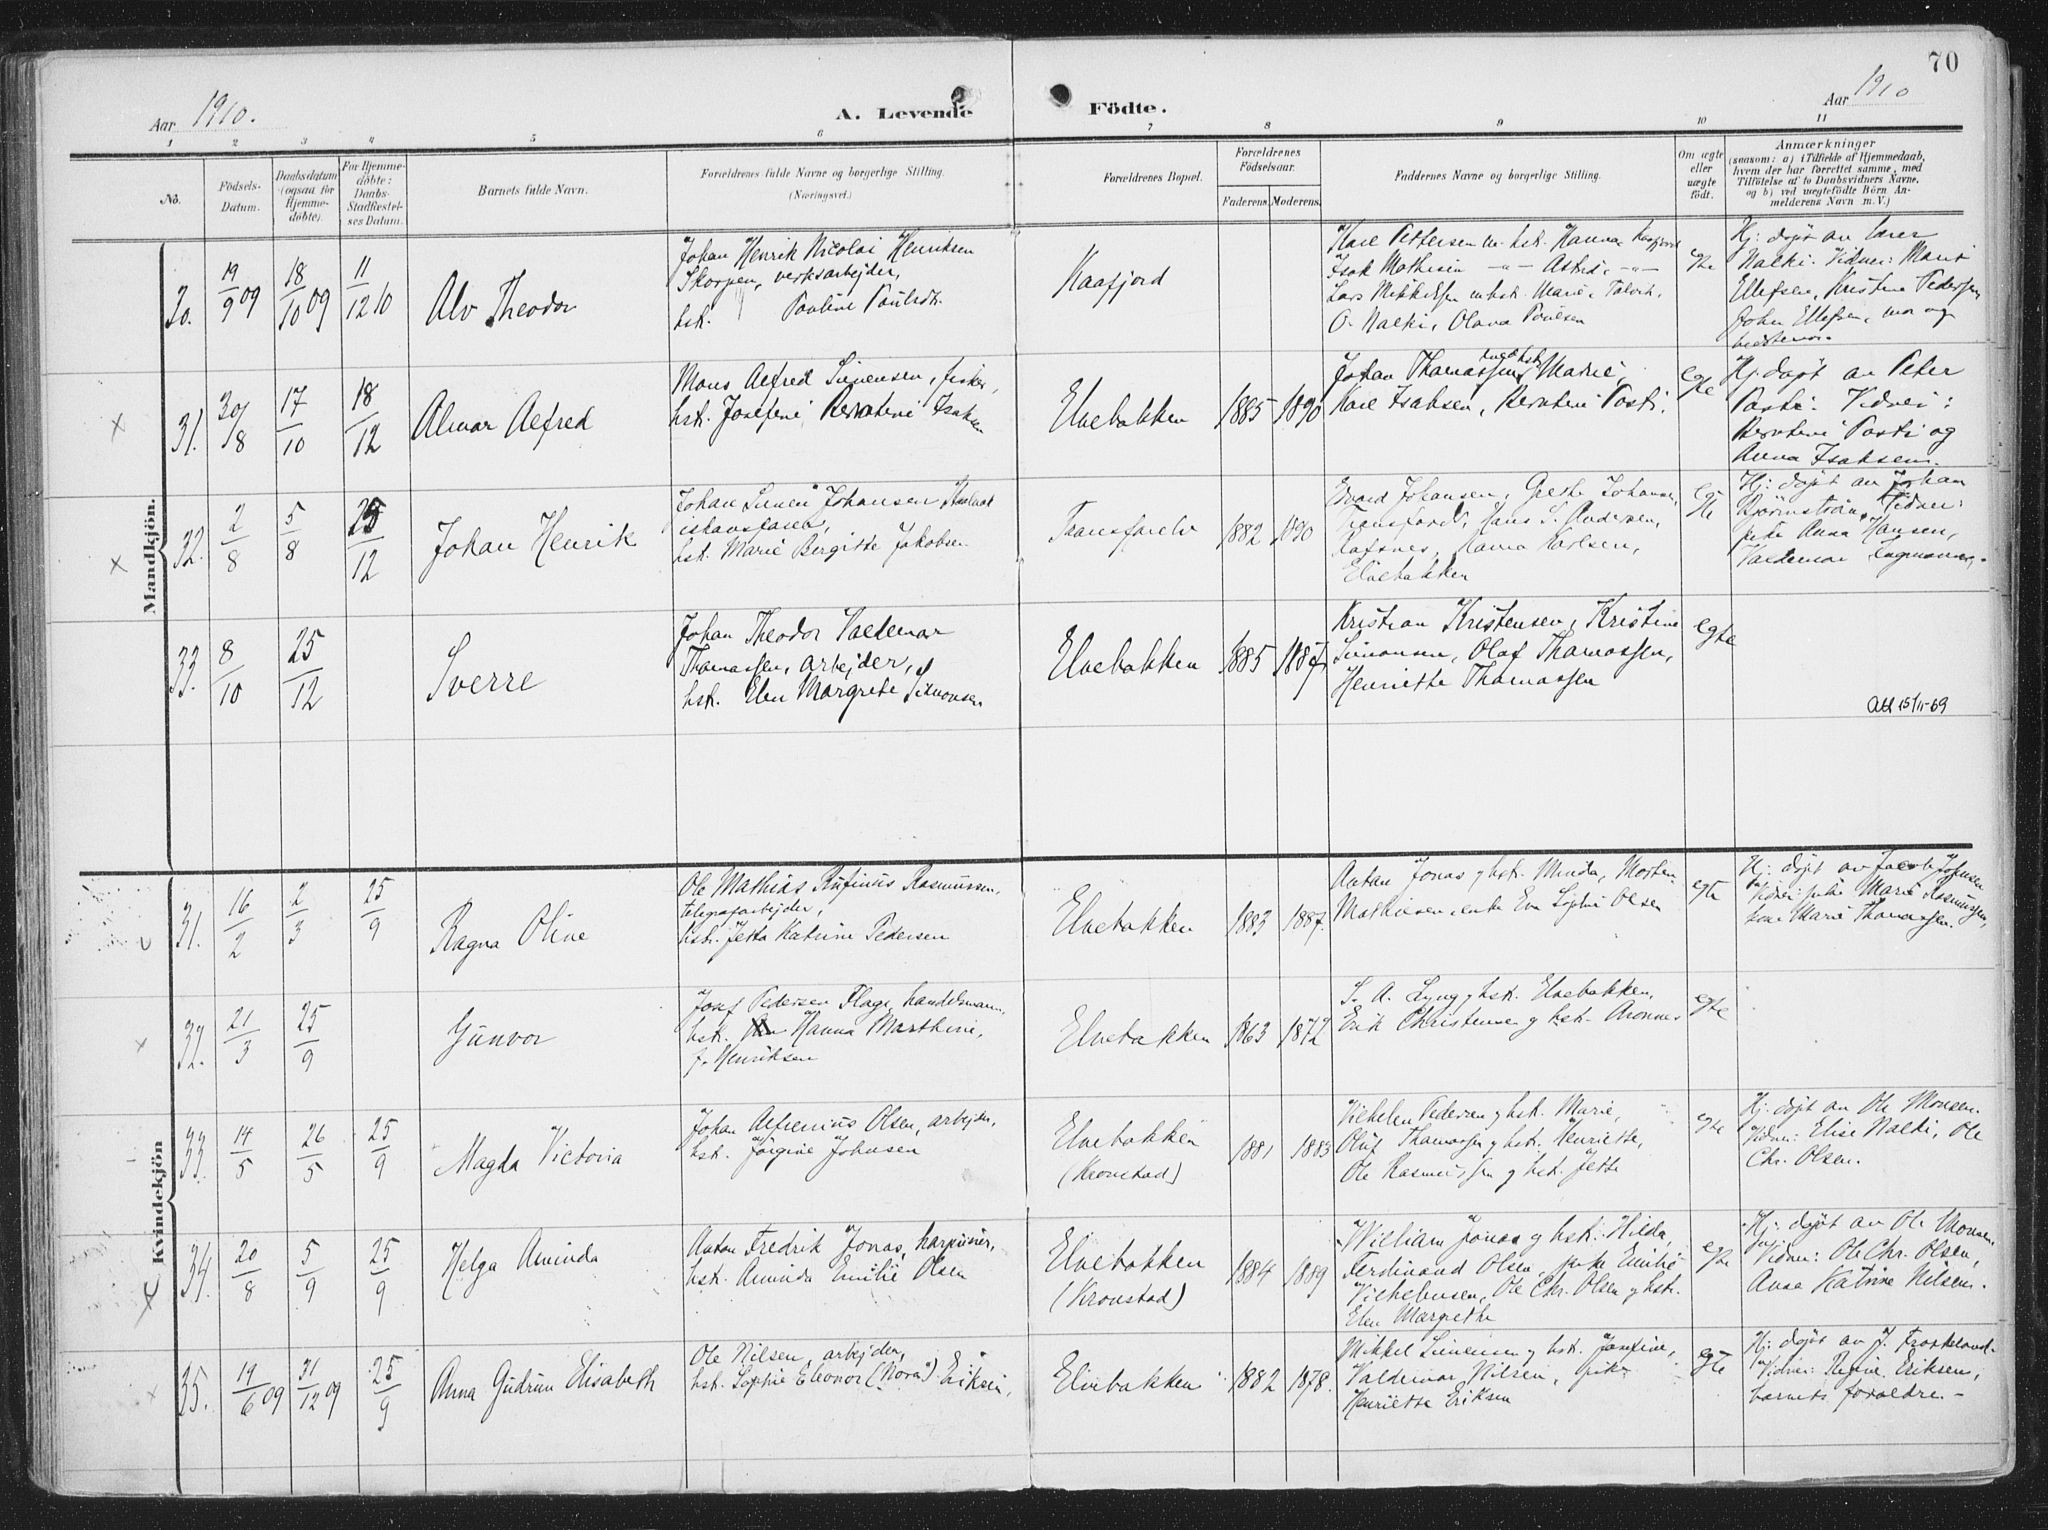 70
Aar 1910.
A. Levende Födte.
Aar 1910
1 2 3 4 5 6 7 8 9 10 11
No.
Födsels-Datum.
Daabsdatum (ogsaa for Hjemme-döbte).
For Hjemme-döbte: Daabs-Stadfæstel-ses Datum.
Barnets fulde Navn.
Forældrenes fulde Navne og borgerlige Stilling.
(Næringsvei.)
Forældrenes Bopæl.
Forældrenes Födselsaar.
Faderens. Moderens.
Faddernes Navne og borgerlige Stilling.
Om ægte eller uægte födt.
Anmærkninger
(saasom: a) i Tilfælde af Hjemmedaab, hvem der har forrettet samme, med Tilföielse af to Daabsvidners Navne, og b) ved uægtefödte Börn An-melderens Navn m. V.)
Mandkjön.
30. 19/9 09 18/10 09 11/12 10 Alv Theodor
Johan Henrik Nicolai Henriksen
Skorpen, verksarbejder,
hst. Pauline Poulsdt.
Kaafjord
Karl Pettersen m. hst. Hanna, Kaafjord
Isak Mathisen -"- Astrid, -"-
Lars Mikkelsen m hst. Marie, Talvik,
O. Nalki, Olava Poulsen
egte
Hj: døpt av lærer
Nalki. Vidner: Marit
Ellefsen, Kristine Pedersen
John Ellefsen, mor og
bedstemor.
31. 30/8 17/10 18/12 Almar Alfred
Mons Alfred Simensen, fisker,
hst. Josefine Berntine Isaksen
Elvebakken 1885 1890
Johan Thomassen med hst. Marie,
Karl Isaksen, Berntine Posti.
egte
Hj. døpt av Peter
Posti. Vidner:
Berntine Posti og
Anna Isaksen.
32. 2/8 5/8 25/12 Johan Henrik
Johan Simen Johansen
hst. Marie Bergitte Jakobsen
Transfarelv 1882 1890
Edvard Johansen, Grethe Johansen,
Transfarelv, Hans S. Andersen,
Rafsnes, Hanna Karlsen,
Elvebakken
egte
Hj: døpt av Johan
Bjørnstrøm, Vidner:
pike Anna Hansen,
Valdemar
33. 8/10 25/12 Sverre
Johan Theodor Valdemar
Thomassen, arbejder,
hst. Elen Margrete Simonsen
Elvebakken 1885 1887
Kristian Kristensen, Kristine
Simonsen, Olaf Thomassen,
Henriette Thomassen
egte
Att 15/11-69
Kvindekjön
31. 16/2 2/3 25/9 Ragna Oline
Ole Mathias Rufinus Rasmussen,
telegrafarbejder,
hst. Jetta Katrine Pedersen
Elvebakken 1883 1887.
Anton Jonas og hst. Minda, Morten
Mathiesen, enke Eva Sophie Olsen
egte
Hj: døpt av Jacob Johnsen
Vidner: pike Marie Rasmussen,
Marie Thomassen.
32. 21/3 25/9 Gunvor
Josef Pedersen Flage, handelsmann,
hst. Hanna Marthine,
f. Henriksen
Elvebakken 1863 1872
S. A. Lyng og hst. Elvebakken,
Erik Christensen og hst. Aronnes
egte
33. 14/5 26/5 25/9 Magda Victoria
Johan Alfrenius Olsen, arbejder,
hst. Jørgine Johnsen
Elvebakken
(Kronstad)
1881 1883
Vilhelm Pedersen og hst. Marie,
Oluf Thomassen og hst. Henriette,
Ole Rasmussen og hst. Jette
egte
Hj: døpt av Ole Monsen.
Vidner: Elise Nalki, Ole
Chr. Olsen.
34. 20/8 5/9 25/9 Helga Aminda
Anton Fredrik Jonas, harpuner,
hst. Aminda Emilie Olsen
Elvebakken
(Kronstad)
1884 1889
William Jonas og hst. Hilda,
Ferdinand Olsen, pike Emilie
Vilhelmsen, Ole Chr. Olsen og hst.
Elen Margrethe
egte
Hj: døpt av Ole Monsen
Vidner: Ole Chr. Olsen,
Anna Katrine Nilsen.
35. 19/6 09 31/12 09 25/9 Anna Gudrun Elisabeth
Ole Nilsen, arbejder,
hst. Sophie Eleonor (Nora) Eriksen,
Elvebakken 1882 1878.
Mikkel Simensen og hst. Josefine,
Valdemar Nilsen, pike
Henriette Eriksen
egte
Hj: døpt av J. Froskeland.
Vidner: Regine Eriksen,
barnets forældre. -